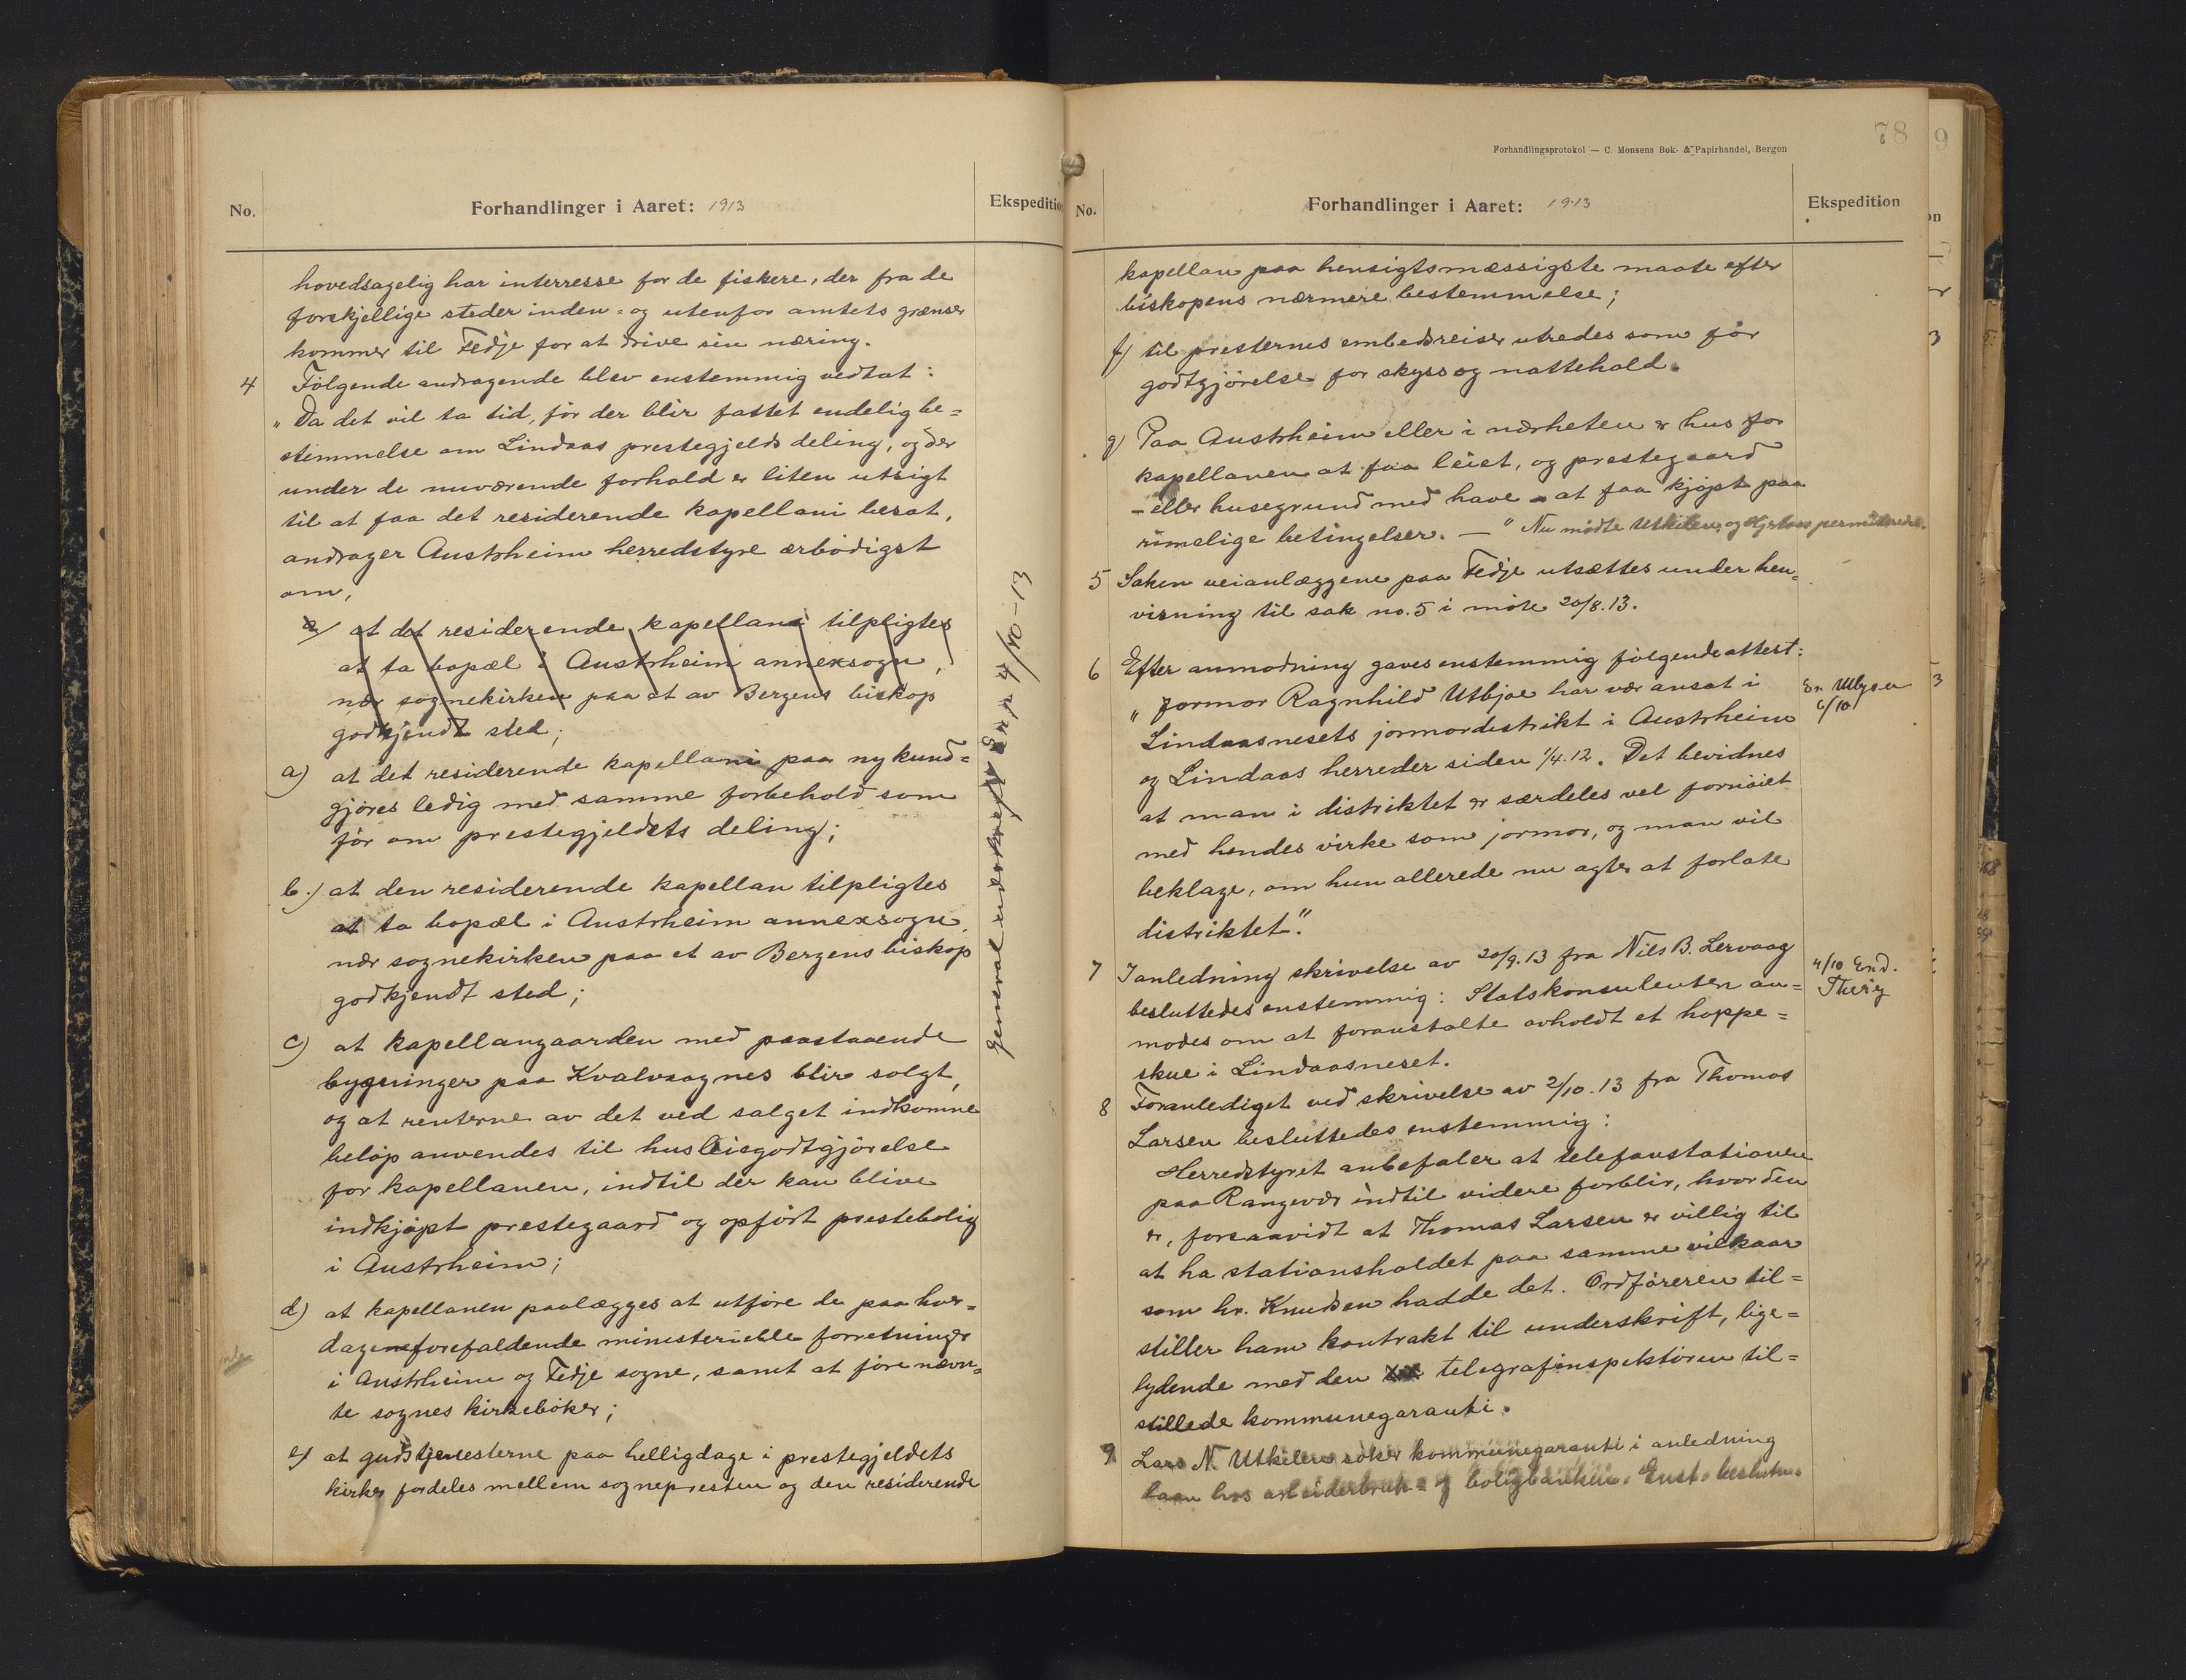 No.
Forhandlinger i Aaret: 1913
Ekspedition
hovedsagelig har interresse for de fiskere, der fra de
forskjellige steder inden= og utenfor amtets grænser
kommer til Fedje for at drive sin næring.
4 Følgende andragende blev enstemmig vedtat:
"Da det vil ta tid, før der blir fattet endelig be=
stemmelse om Lindaas prestegjelds deling, og der
under de nuværende forhold er liten utsigt
til at faa det residerende kapellani besat,
andrager Austrheim herredstyre ærbødigst
om,
a/ at det residerende kapellani tilpligtes
at ta bopæl i Austrheim annexsogn,
nær sognekirken paa et av Bergens biskop
godkjendt sted;
a) at det residerende kapellani paa ny kund=
gjøres ledig med samme forbehold som
før om prestegjeldets deling;
b.) at den residerende kapellan tilpligtes
at ta bopæl i Austrheim annexsogn,
nær sognekirken paa et av Bergens biskop
godkjendt sted;
c) at kapellangaarden med paastaaende
bygninger paa Kvalvaagnes blir solgt,
og at renterne av det ved salget indkomne
beløp anvendes til husleiegodtgjørelse
for kapellanen, indtil der kan blive
indkjøpt prestegaard og opført prestebolig
i Austrheim;
d) at kapellanen paalægges at utføre de paa hver=
dagene forefaldende ministerielle forretninger
i Austrheim og Fedje sogne, samt at føre nævn=
te sognes kirkebøker;
e) at gudstjenesterne paa helligdage i prestegjeldets
kirker fordeles mellem sognepresten og den residerende
4/10-13
78
Forhandlingsprotokol — C. Monsens Bok- & Papirhandel, Bergen
No.
Forhandlinger i Aaret: 1913
Ekspedition
kapellan paa hensigtsmæssigste maate efter
biskopens nærmere bestemmelse;
f) til presternes embedsreiser utredes som før
godtgjørelse for skyss og nattehold.
g) Paa Austrheim eller i nærheten er hus for
kapellanen at faa leiet, og prestegaard
- eller husegrund med have - at faa kjøpt paa
rimelige betingelser. — " Nu mødte Utkilen og
5 Saken veianlæggene paa Fedje utsættes under hen=
visning til sak no. 5 i møte 20/8.13.
6 Efter anmodning gaves enstemmig følgende attest:
" Jormor Ragnhild Utbjoe har vær ansat i
Lindaasnesets jormordistrikt i Austrheim
og Lindaas herreder siden 1/4.12. Det bevidnes
at man i distriktet er særdeles vel fornøiet
med hendes virke som jormor, og man vil
beklage, om hun allerede nu agter at forlate
distriktet."
6/10
7 I anledning skrivelse av 20/9.13 fra Nils B. Lervaag
besluttedes enstemmig: Statskonsulenten an=
modes om at foranstalte avholdt et hoppe=
skue i Lindaasneset.
4/10 End.
8 Foranlediget ved skrivelse av 2/10.13 fra Thomas
Larsen besluttedes enstemmig:
Herredstyret anbefaler at telefonstationen
paa Rangevær indtil videre forblir, hvor den
er, forsaavidt at Thomas Larsen er villig til
at ha stationsholdet paa samme vilkaar
som hr. Knudsen hadde det. Ordføreren til=
stiller ham kontrakt til underskrift, lige=
lydende med den telegrafinspektøren til=
stillede kommunegaranti.
9 Lars N. Utkilen søker kommunegaranti i anledning
laan hos arbeiderbruk- og boligbanken. Enst. beslutn.